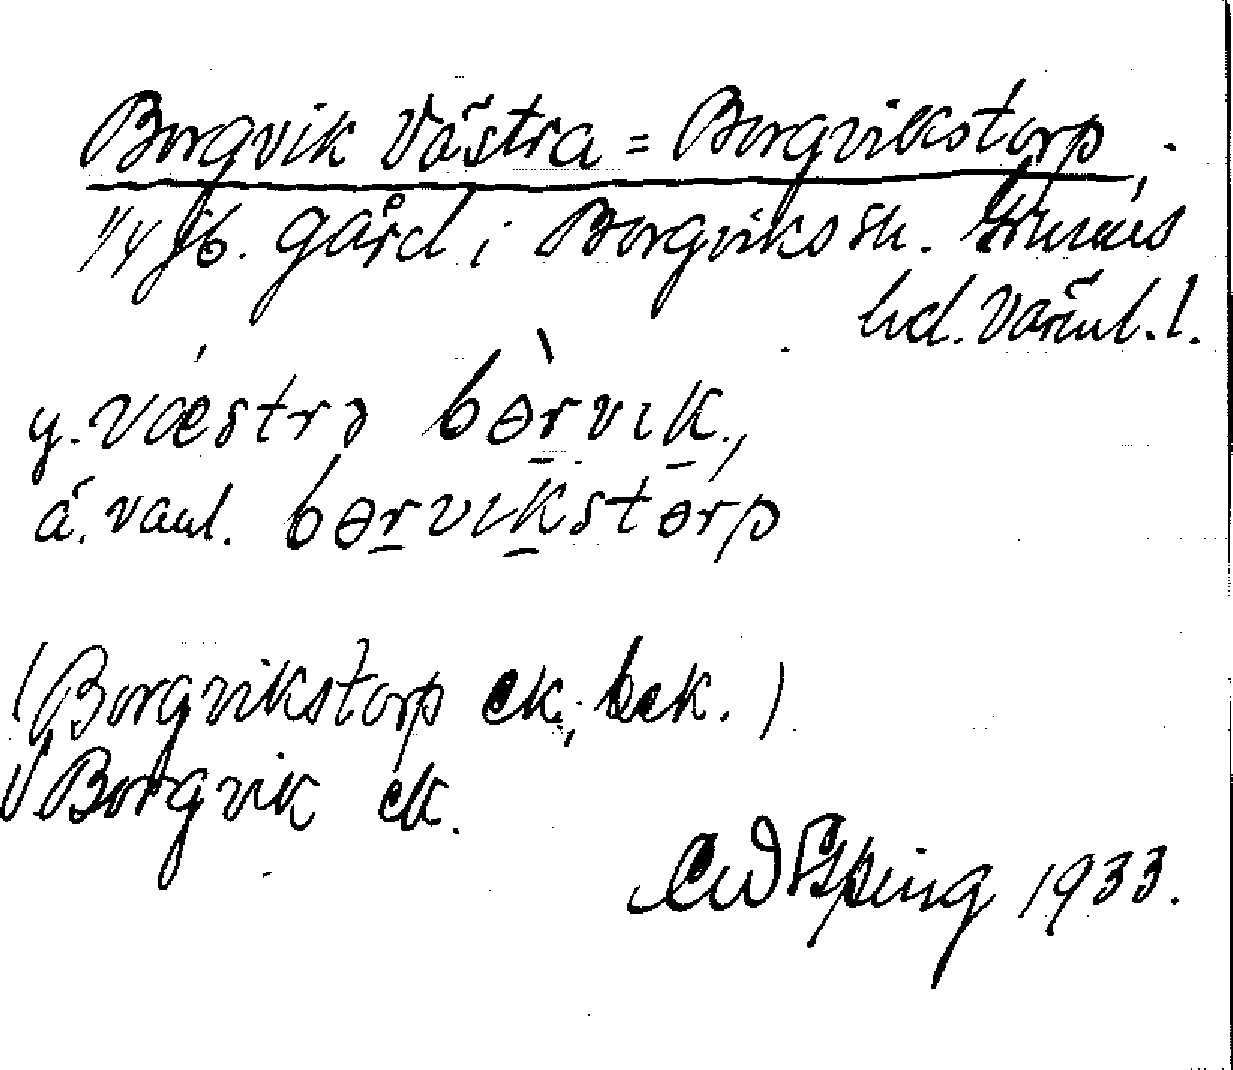 Borgvik Västra = Borgvikstorp.
1/4 fb. gård i Borgviks sn. Grums
hd. Värml. l.
y. væstrə bɵrvɩk,
ä. vanl. bɵrvɩkstɵrp
(Borgvikstorp ek, bek.)
V. Borgvik ek.
1933.